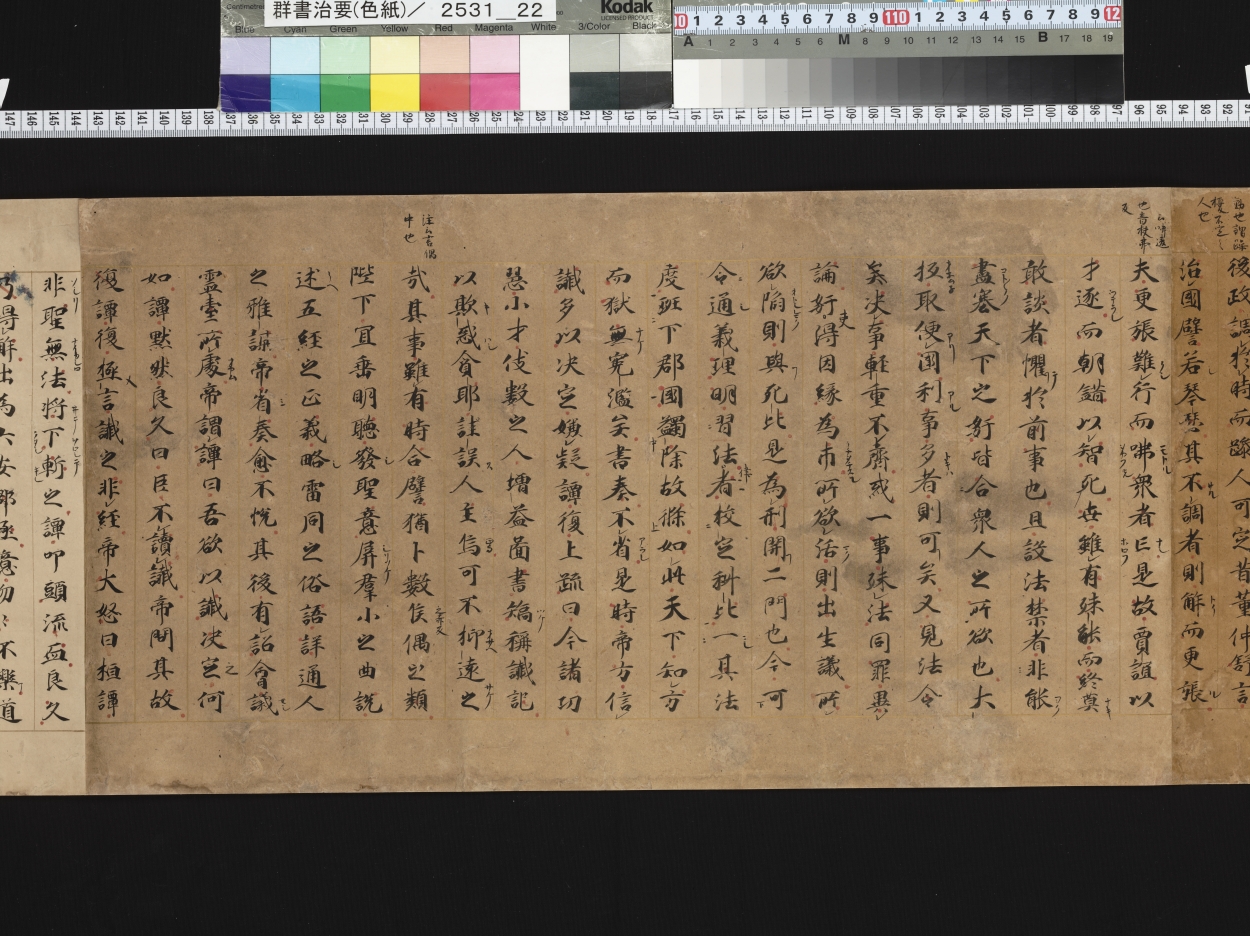 群書治要(色紙)／ 2531__22
Kodak
LICENSED PRODUCT
Blue Cyan Green Yellow Red Magenta White 3/Color Black
後政調於時而躁人可定昔董仲舒言
治國譬若琴瑟其不調者則解而更張
夫更張難行而咈衆者亡是故賈誼以
才逐而朝錯以智死世雖有殊能而終莫
敢談者懼於前事也且設法禁者非能
盡塞天下之姧皆合衆人之所欲也大
抵取便國利事多者則可矣又見法令
矣决事輕重不齊或一事殊法同罪異
論姧得因緣為市所欲活則出生議所
欲陷則與死比是為刑開二門也今可
令通義理明習法者校定科比一其法
度班下郡國蠲除故條如此天下知方
而獄無寃濫矣書奏不省是時帝方信
讖多以决定嫌疑譚復上疏曰今諸巧
慧小才伎數之人増益啚書矯稱讖記
以欺惑貪耶詿誤人主焉可不抑遠之
哉其事雖有時合譬猶卜數隻偶之類
陛下宜垂明聽發聖意屏羣小之曲說
述五經之正義略雷同之俗語詳通人
之雅謀帝省奏愈不悅其後有詔會議
靈臺所處帝謂譚曰吾欲以讖决之何
如譚默然良久曰臣不讀讖帝問其故
復譚復極言讖之非經帝大怒曰桓譚
非聖無法將下斬之譚叩頭流血良久
乃得解出為六安郡丞意忽〻不樂道